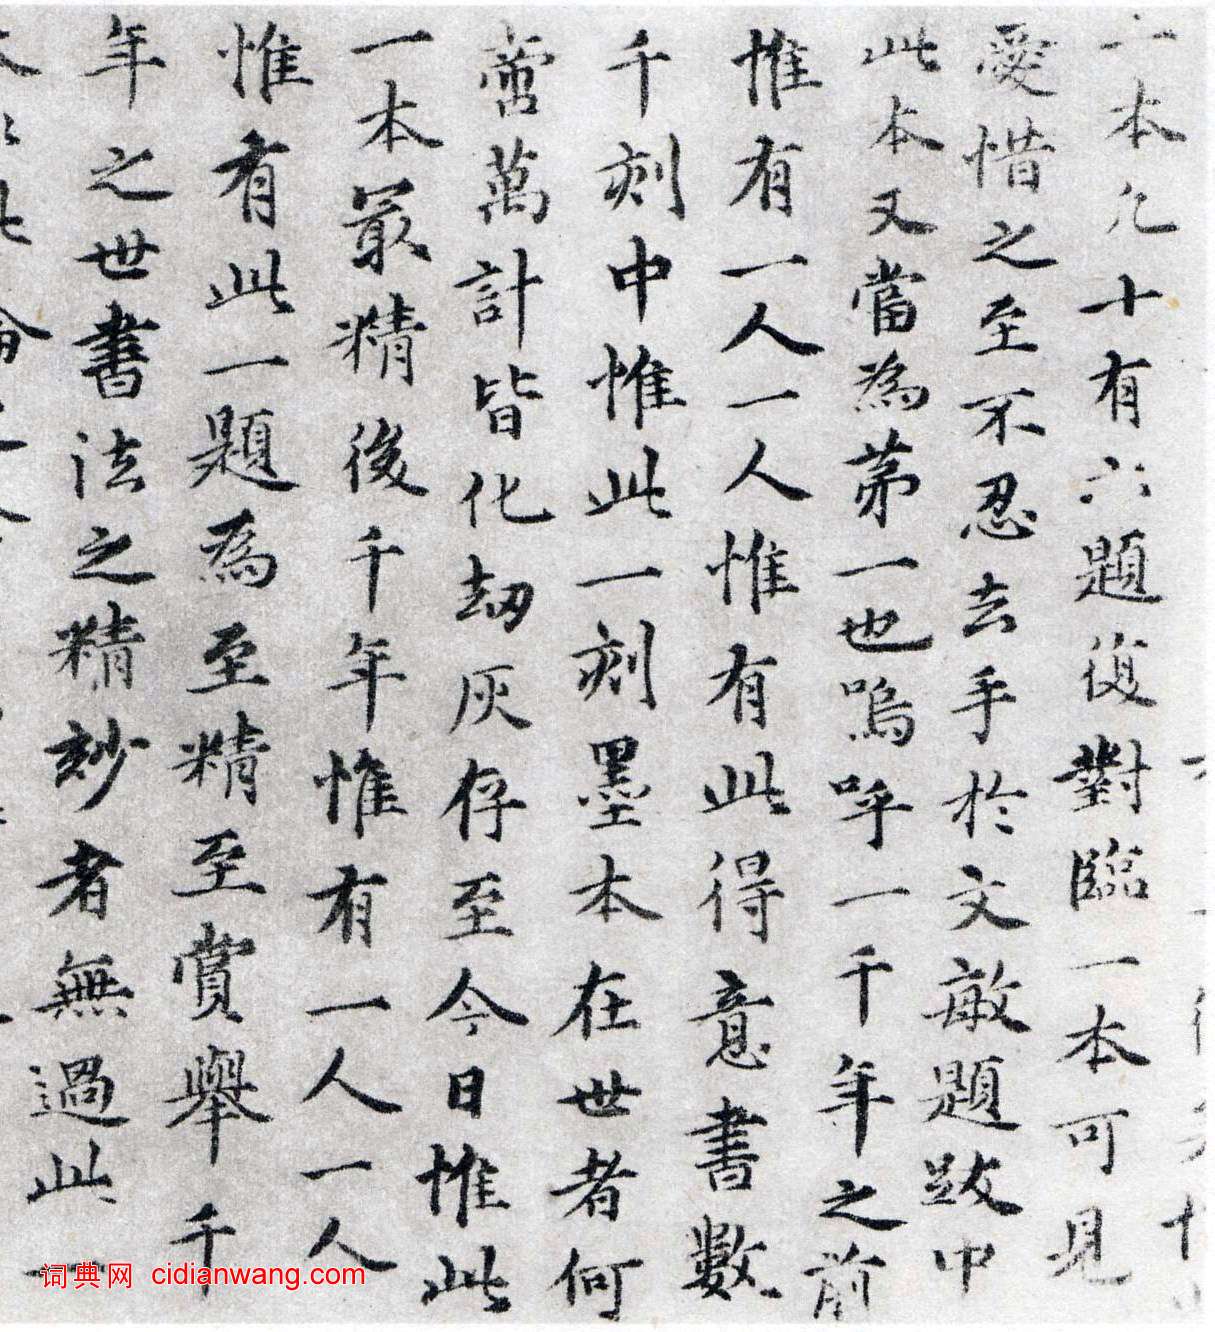 一本凡十有六題復對臨一本可見
愛惜之至不忍去手於文敏題跋中
此本又當為第一也嗚呼一千年之前
惟有一人一人惟有此得意書數
千刻中惟此一刻墨本在世者何
啻萬計皆化劫灰存至今日惟此
一本最精後千年惟有一人一人
惟有此一題為至精至賞舉千
年之世書法之精妙者無過此一
词典网 cidianwang.com